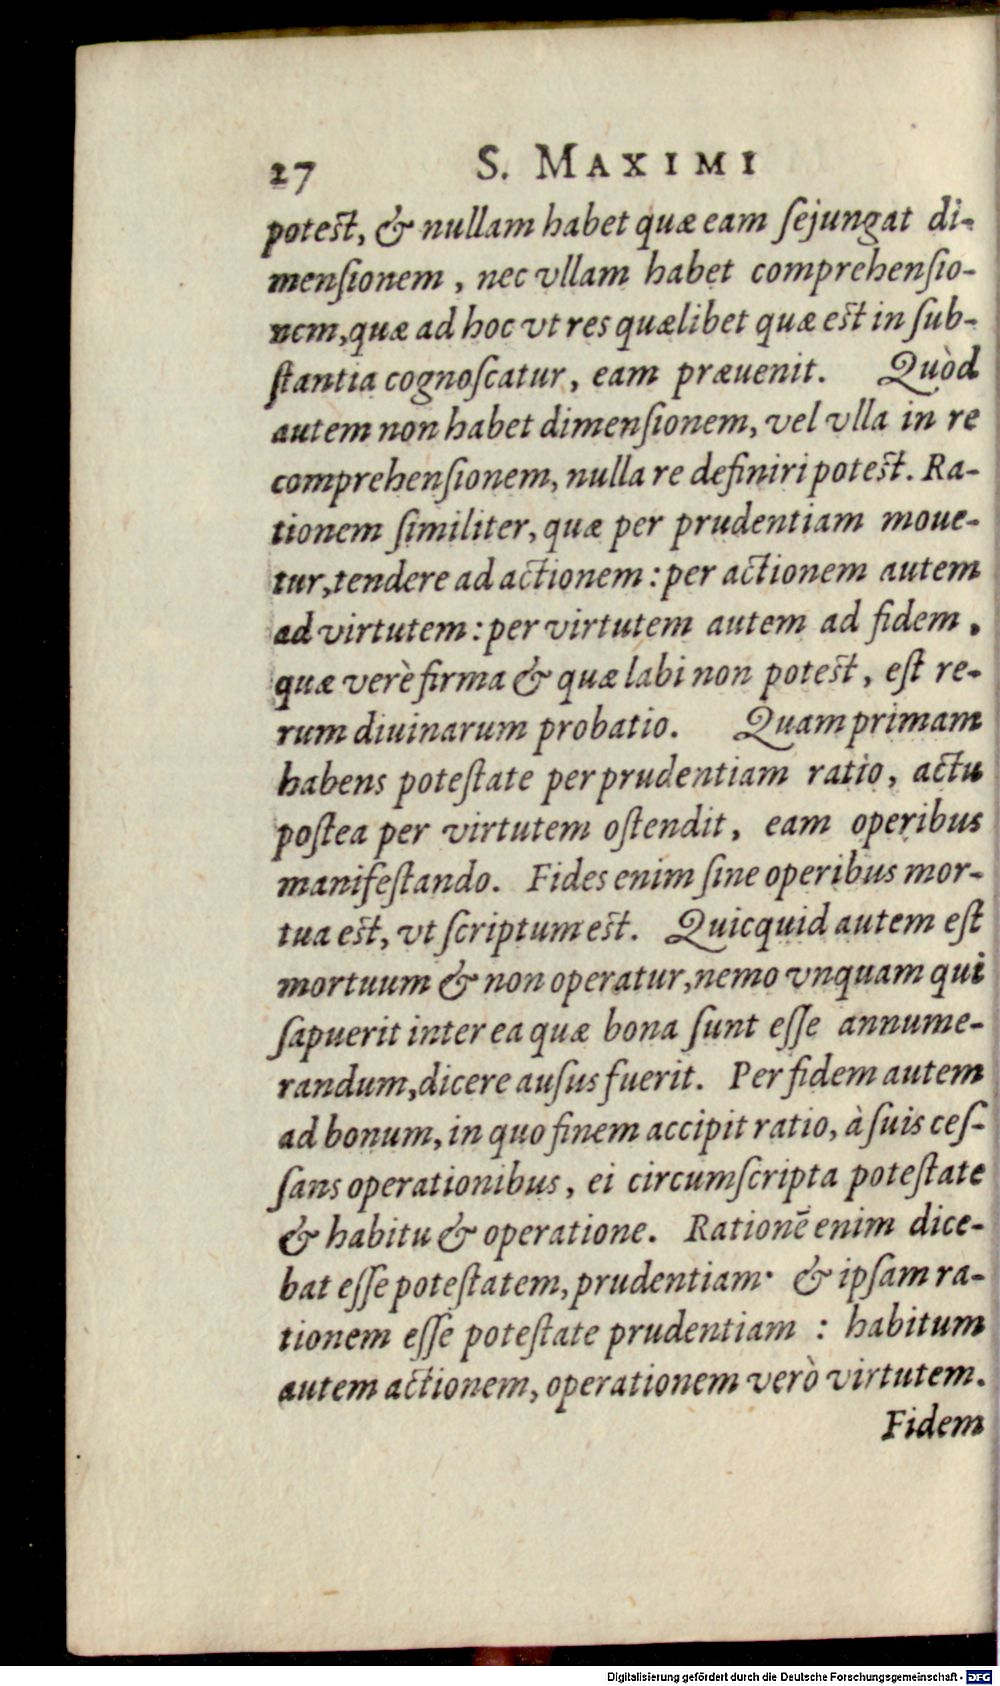 27 S. MAXIMI
potest, & nullam habet quæ eam ſejungat di-
menſionem, nec vllam habet comprehenſio-
nem, quæ ad hoc vt res quælibet quæ est in ſub-
ſtantia cognoſcatur, eam præuenit. Quòd
autem non habet dimenſionem, vel vlla in re
comprehenſionem, nulla re definiri potest. Ra-
tionem ſimiliter, quæ per prudentiam moue-
tur, tendere ad actionem: per actionem autem
ad virtutem: per virtutem autem ad fidem,
quæ verè firma & quæ labi non potest, eſt re-
rum diuinarum probatio. Quam primam
habens poteſtate per prudentiam ratio, actu
poſtea per virtutem oſtendit, eam operibus
manifeſtando. Fides enim ſine operibus mor-
tua est, vt ſcriptum est. Quicquid autem eſt
mortuum & non operatur, nemo vnquam qui
ſapuerit inter ea quæ bona ſunt eſſe annume-
randum, dicere auſus fuerit. Per fidem autem
ad bonum, in quo finem accipit ratio, à ſuis ceſ-
ſans operationibus, ei circumſcripta poteſtate
& habitu & operatione. Rationē enim dice-
bat eſſe poteſtatem, prudentiam· & ipſam ra-
tionem eſſe poteſtate prudentiam: habitum
autem actionem, operationem verò virtutem.
Fidem
Digitalisierung gefördert durch die Deutsche Forschungsgemeinschaft - DFG